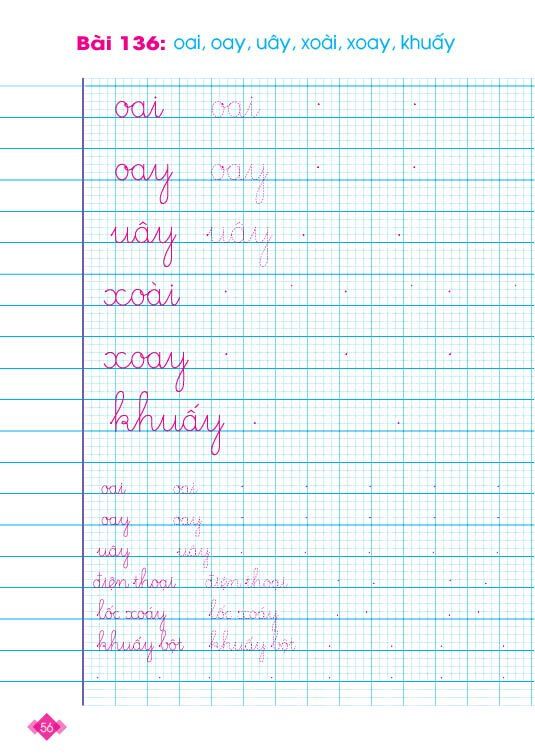 Bài 136: oai, oay, uây, xoài, xoay, khuấy
oai oai
oay oay
uây uây
xoài
xoay
khuấy
oai oai
oay oay
uây uây
điện thoại điện thoại
lốc xoáy lốc xoáy
khuấy bột khuấy bột
56